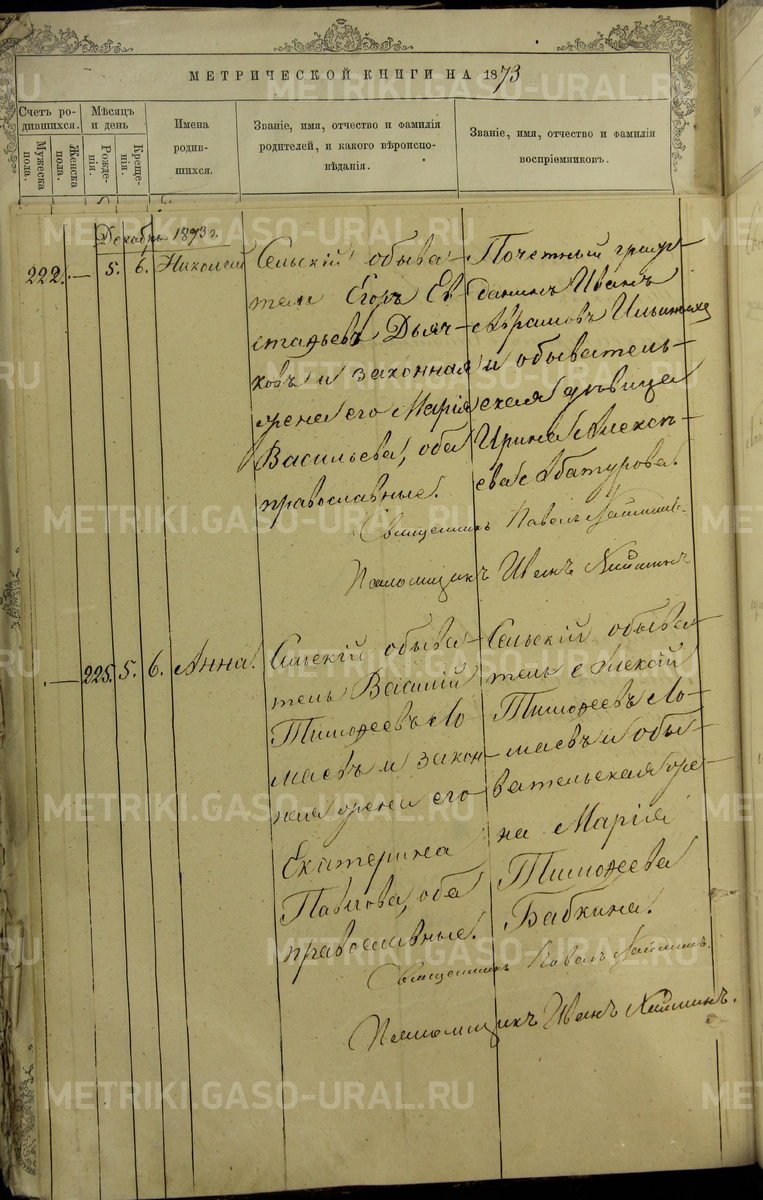 МЕТРИЧЕСКОЙ КНИГИ НА 1873
Счетъ родившихся.
Мужеска пола.
Женска пола.
Мѣсяцъ и день
Рожденія.
Крещенія.
Имена родившихся.
Званіе, имя, отчество и фамилія родителей, и какого вѣроисповѣданія.
Званіе, имя, отчество и фамилія воспріемниковъ.
Декабрь 1873 г.
222. — 5. 6. Николай
Сельскій обыва-
тель Егоръ Ев-
стафьевъ Дьяч-
ковъ и законная
жена его Марія
Васильева, оба
православные.
Почетный граж-
данинъ Иванъ
Абрамовъ
и обыватель-
ская дѣвица
Ирина Алексѣ-
ева Абатурова.
Священникъ Павелъ
Псаломщикъ Иванъ
— 225. 5. 6. Анна.
Сельскій обыва-
тель Василій
Тимофеевъ Ло-
маевъ и закон-
ная жена его
Екатерина
Павлова, оба
православные.
Сельскій обыва-
тель Алексѣй
Тимофеевъ Ло-
маевъ и обы-
вательская же-
на Марія
Тимофеева
Бабкина.
Священникъ Павелъ
Псаломщикъ Иванъ
METRIKI.GASO-URAL.RU